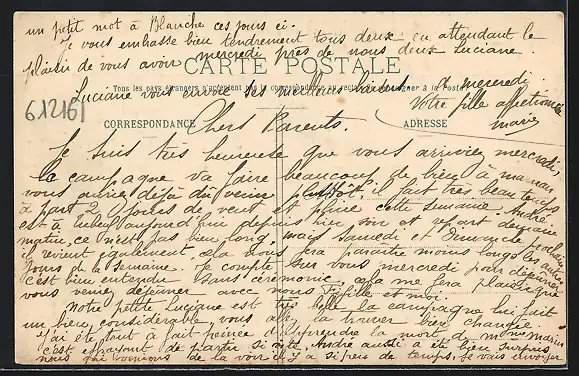 un petit mot à Blanche ces jours ci.
Je vous embrasse bien tendrement tous deux en attendant le
plaisir de vous avoir mercredi près de nous deux Luciane.
CARTE POSTALE
Luciane vous envoie ses meilleurs baisers à mercredi
Tous les pays étrangers n'acceptent pas la correspondance au recto se renseigner à la Poste
Votre fille affectionnée
Marie
612161
CORRESPONDANCE
Chers Parents.
ADRESSE
Je suis très heureuse que vous arriviez mercredi,
la campagne va faire beaucoup de bien à maman
vous auriez déjà dû venir plus tôt, il fait très beau temps
à part 2 jours de vent et pluie cette semaine. André
est à aujourd'hui depuis hier soir et repart demain
matin, ce n'est pas bien long, mais samedi et dimanche prochain
il revient également cela nous fera paraître moins longs les autres
jours de la semaine. Je compte sur vous mercredi pour déjeuner
c'est bien entendu sans cérémonie, cela me fera plaisir que
vous venier déjeuner avec nous fille et moi.
Notre petite Luciane est très belle la campagne lui fait
un bien considérable vous allez la trouver bien changée
J'ai été tout à fait peinée d'apprendre la mort de Mme Marin
c'est effrayant de partir si vite. André aussi a été bien surpris
nous qui venions de la voir il y a si peu de temps. Je vais envoyer